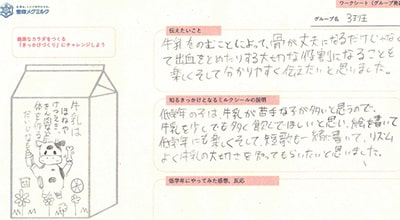 雪印メグミルク
ワークシート（グループ発
グループ名 3班
健康なカラダをつくる
「きっかけづくり」にチャレンジしよう
牛乳は
ほねや
けつえき
きん肉など
体を作る
だいじ
伝えたいこと
牛乳をのむことによって、骨が丈夫になるだけじゃなく
て出血をとめたりする大切な役割になることを
楽しくそして分かりやすく伝えたいと思いました。
知るきっかけとなるミルクシールの説明
低学年の子は、牛乳が苦手な子が多いと思うので、
牛乳を少しでも多く飲んでほしいと思い、絵を書いて
低学年にも楽しくそして、短歌も一緒に書いて、リズム
よく牛乳の大切さを知ってもらいたいと思いました。
低学年にやってみた感想、反応